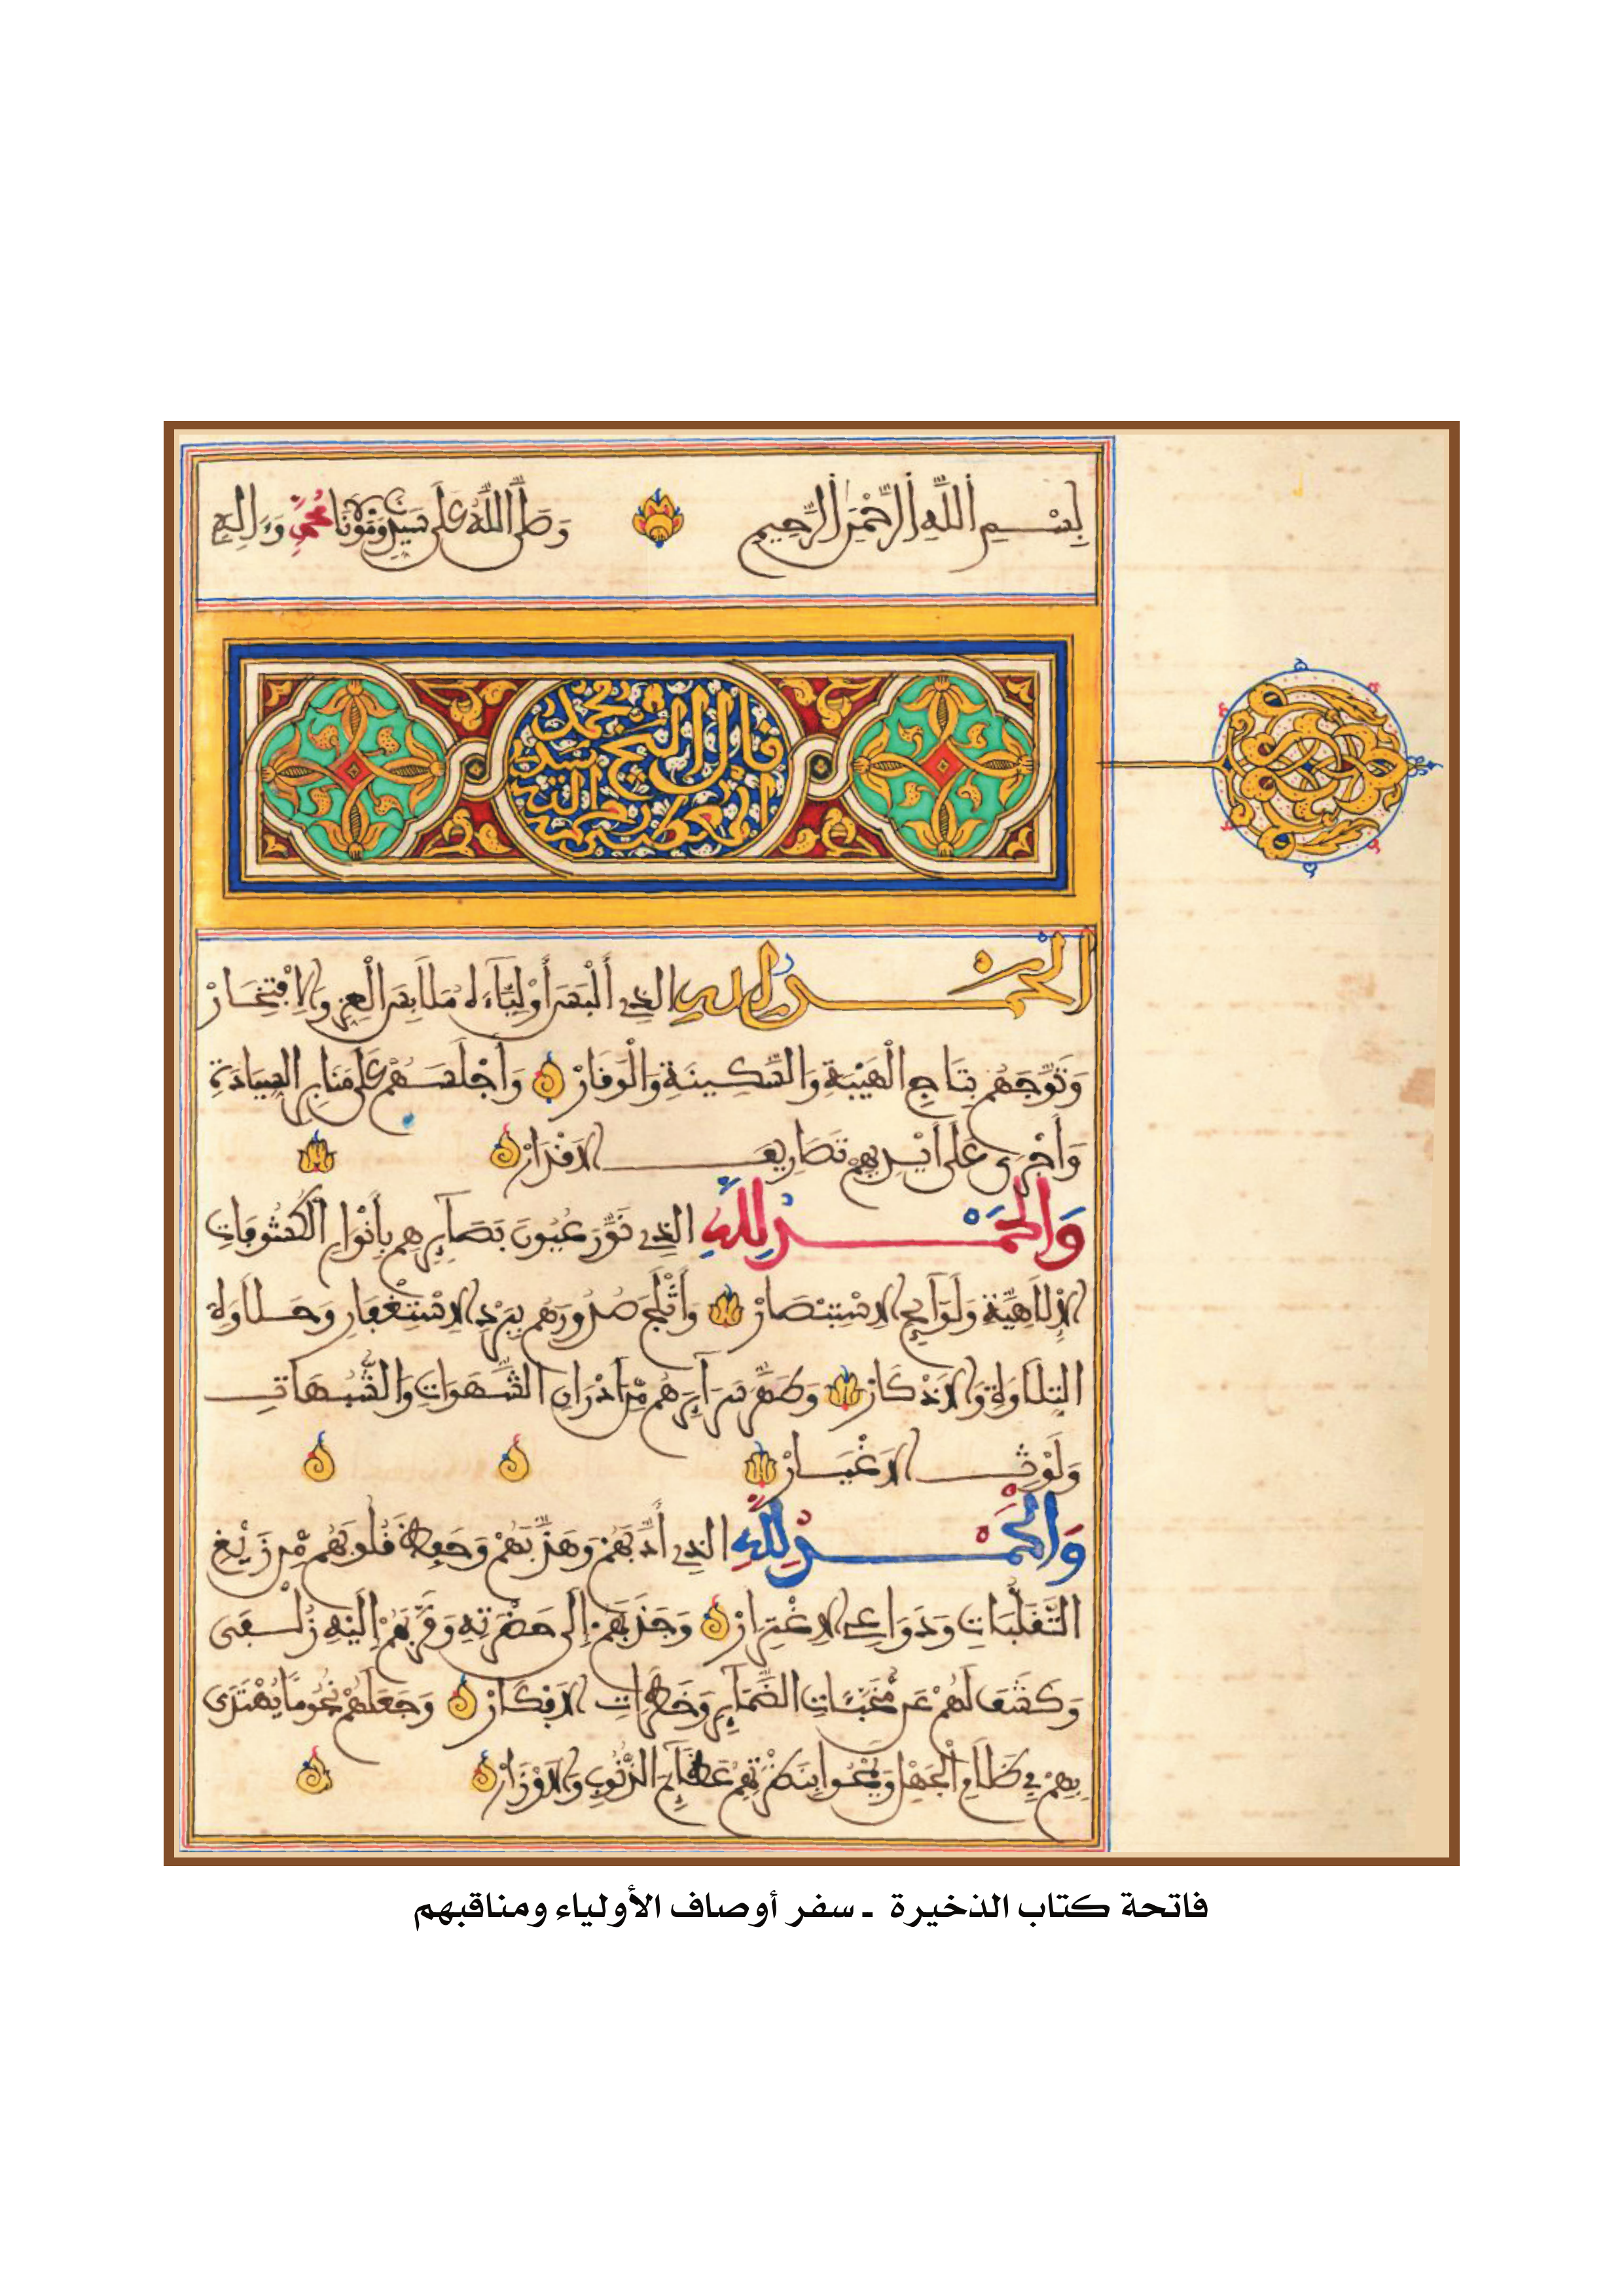 بِسْــمِ اللَّهِ الرَّحْمَنِ الرَّحِيمِ وَصَلَّى اللَّهُ عَلَى سَيِّدِنَا وَمَوْلَانَا مُحَمَّدٍ وَءَالِهِ
قال الشيخ سيد محمد
المعطى بن الصالح
الحَمْــدُ لِلهِ الذِي أَلْبَسَ أَوْلِيَاءَهُ مَلَابِسَ الْعِزِّ وَالِافْتِخَـارْ
وَتَوَّجَهُمْ بِتَاجِ الْهَيْبَةِ وَالسَّكِينَةِ وَالْوَقَارْ وَأَجْلَسَـهُمْ عَلَى مَنَابِرِ السِّيَادَةِ
وَأَجْرَى عَلَى أَيْدِيهِمْ تَصَارِيفَ الَاقْدَارْ
وَالحَمْــدُ لِلَّهِ الذِي نَوَّرَ عُيُونَ بَصَآئِرِهِم بِأَنْوَارِ الْكُشُوفَاتِ
الْإِلَاهِيَّةِ وَلَوَآئِحِ الِاسْتِبْصَارْ وَأَثْلَجَ صُدُورَهُم بِبَرْدِ الِاسْتِغْفَارِ وَحَـلَاوَةِ
التِّلَاوَةِ وَالَاذْكَارْ وَطَهَّرَ سَرَآئِرَهُم مِّنَ ادْرَانِ الشَّهَوَاتِ وَالشُّبُهَاتِ
وَلَوْثِ الَاغْيَـارْ
وَالحَمْــدُ لِلَّهِ الذِي أَدَّبَهُمْ وَهَذَّبَهُمْ وَحَفِظَ قُلُوبَهُم مِّن زَيْغِ
التَّقَلُّبَاتِ وَدَوَاعِي الِاغْتِرَارْ وَجَذَبَهُمْ إِلَى حَضْرَتِهِ وَقَرَّبَهُمْ إِلَيْهِ زُلْـفَى
وَكَشَفَ لَهُمْ عَن مُّخَبَّئَاتِ الضَّمَآئِرِ وَخَطَرَاتِ الَافْكَارْ وَجَعَلَهُمْ نُجُومًا يُهْتَدَى
بِهِمْ فِي ظَلَامِ الْجَهْلِ وَيَمْحُوا بِنَظْرَتِهِمْ عَظَآئِمَ الذُّنُوبِ وَالَاوْزَارْ
فاتحة كتاب الذخيرة ـ سفر أوصاف الأولياء ومناقبهم